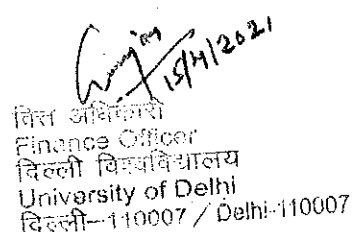 15/4/2021
वित्त अधिकारी
Finance Officer
दिल्ली विश्वविद्यालय
University of Delhi
दिल्ली-110007 / Delhi-110007